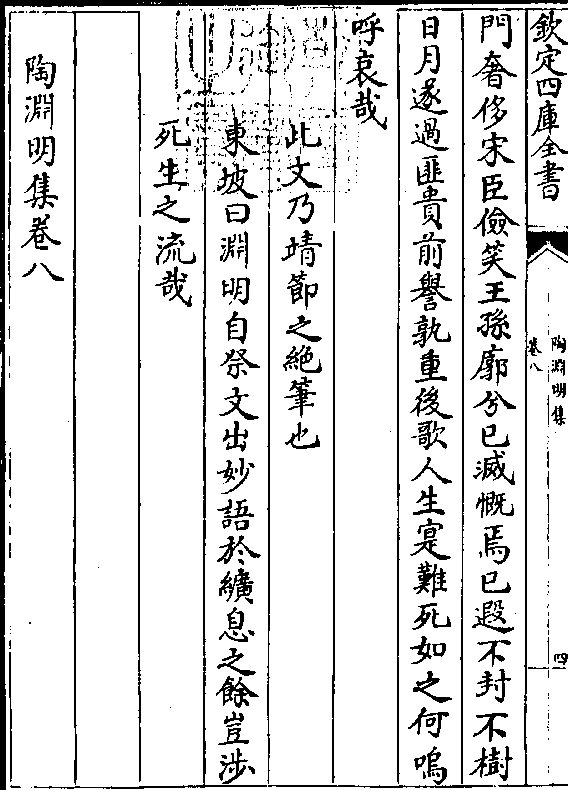 欽定四庫全書
陶淵明集
卷八
四
門奢侈宋臣儉笑王孫廓兮已滅慨焉已遐不封不樹
日月遂過匪貴前譽孰重後歌人生寔難死如之何嗚
呼哀哉
此文乃靖節之絶筆也
東坡曰淵明自祭文出妙語於纊息之餘豈涉
死生之流哉
陶淵明集卷八